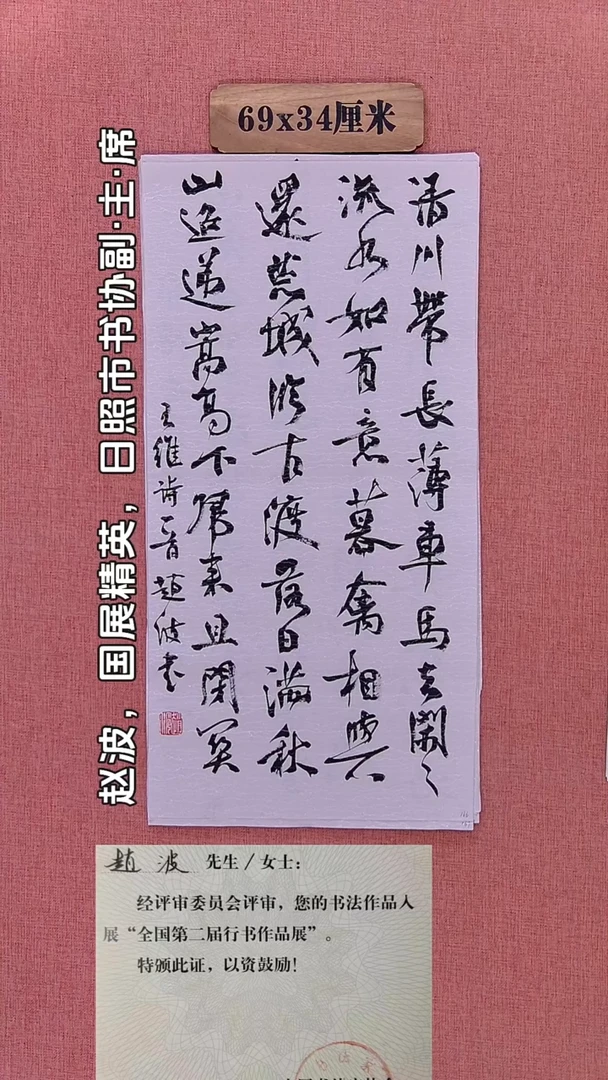 69x34厘米
清川帶長薄車馬去閑〻
流水如有意暮禽相與
還荒城臨古渡落日滿秋
山迢遞嵩高下歸來且閉關
王維詩一首趙波書
赵波，国展精英，日照市书协副·主·席
趙波 先生/女士：
经评审委员会评审，您的书法作品入
展“全国第二届行书作品展”。
特颁此证，以资鼓励！